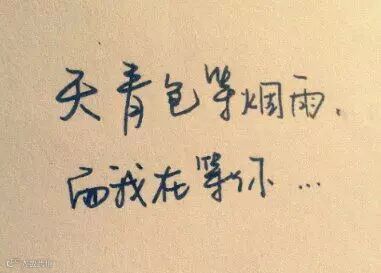 天青色等烟雨，
而我在等你…